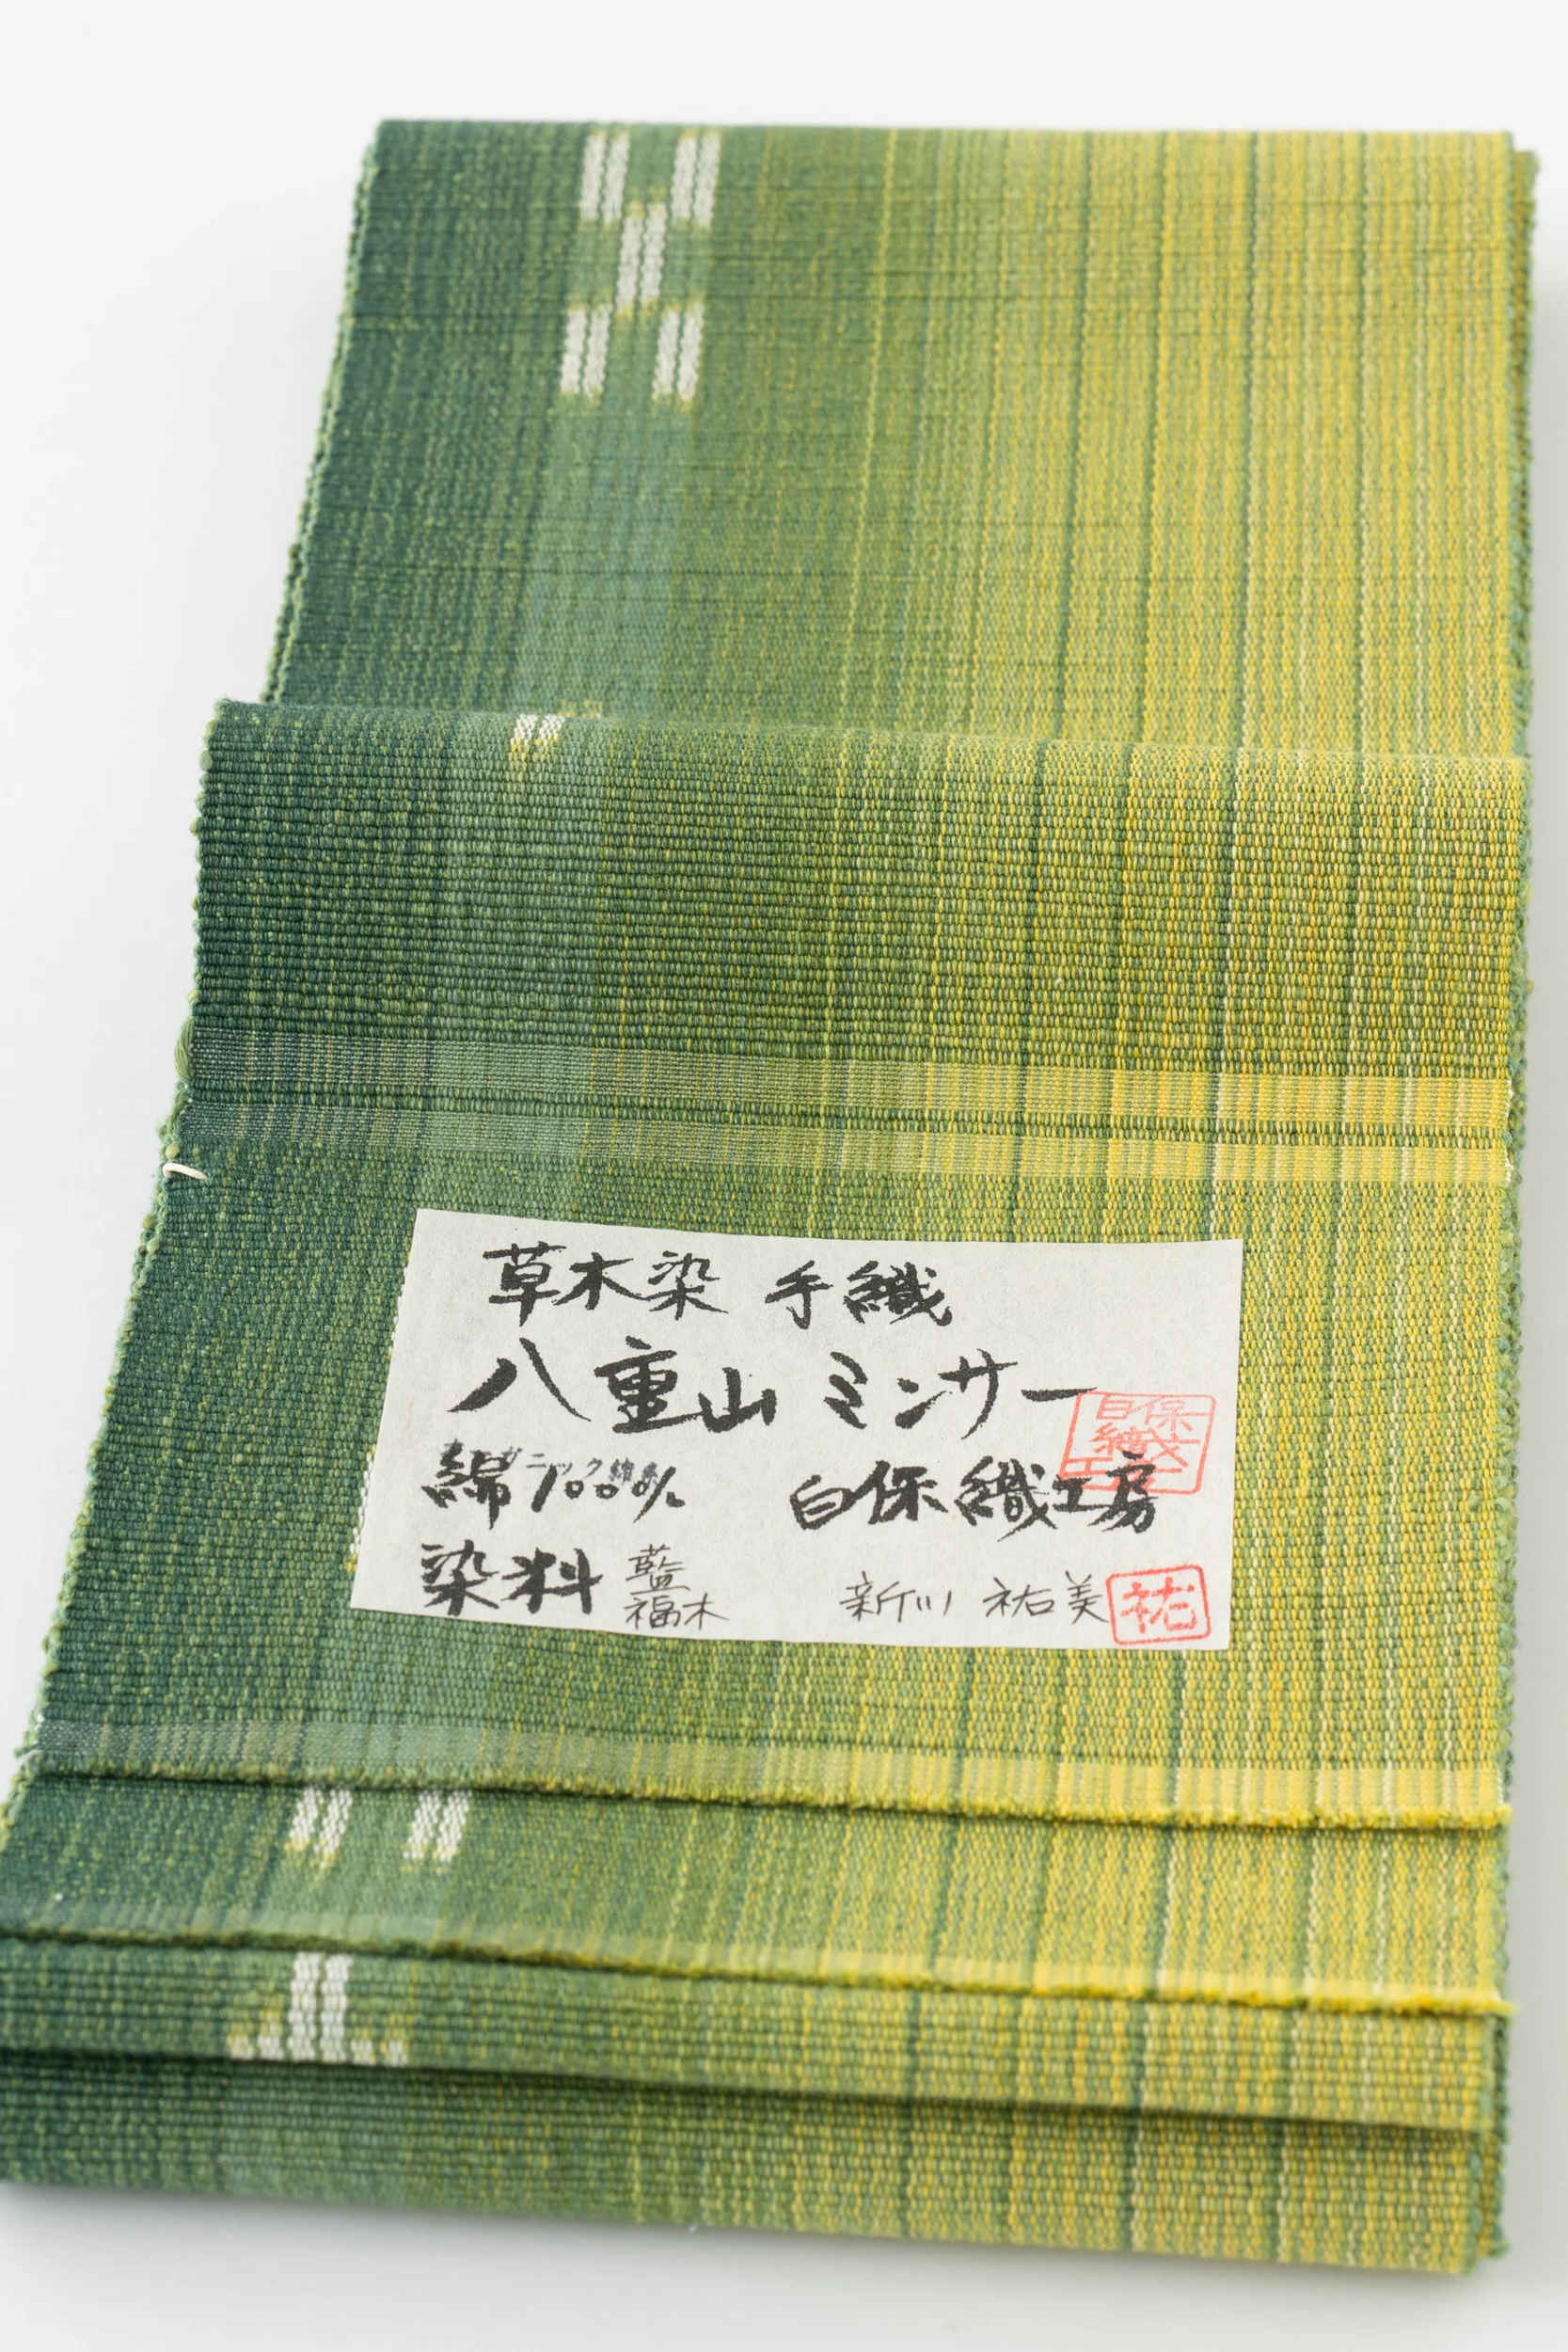 草木染 手織
八重山 ミンサー
白保
織
工
綿100%
白保織工房
染料 藍
福木
新川 祐美
祐